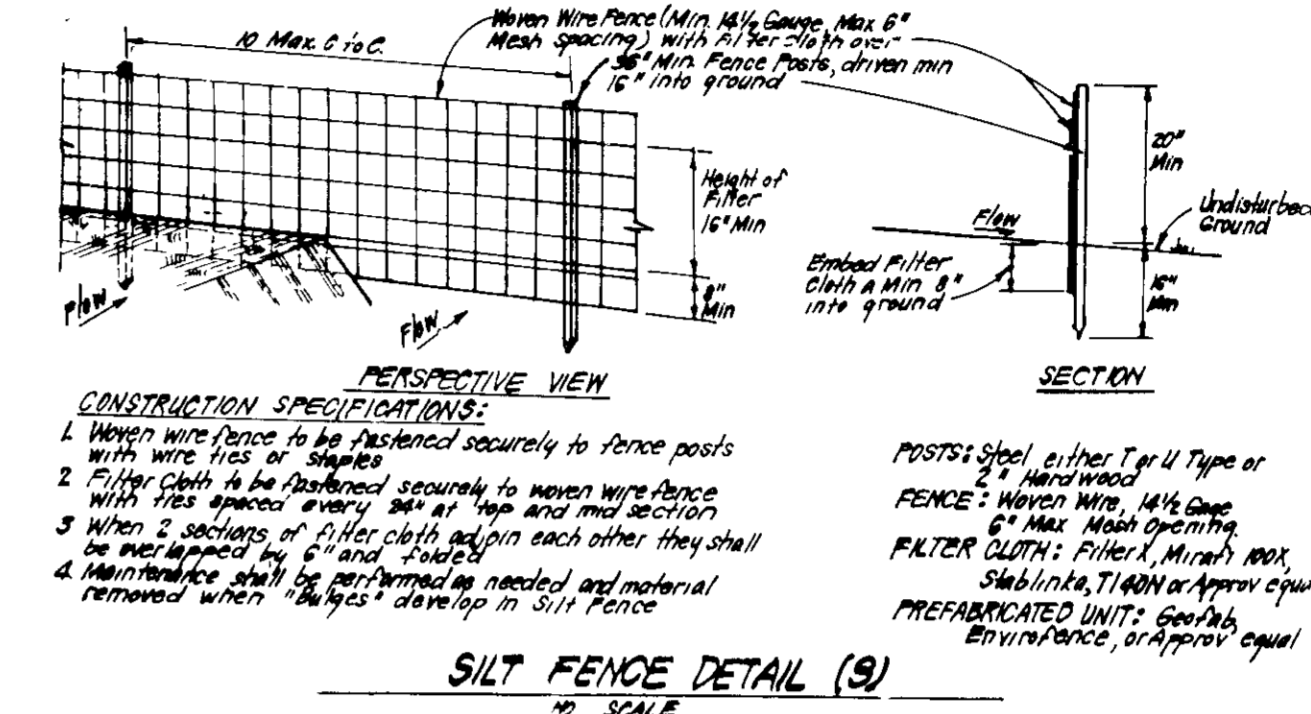 Woven Wire Fence (Min. 14½ Gauge, Max 6"
Mesh Spacing) with Filter Cloth over
10 Max. C to C.
36" Min. Fence Posts, driven min
16" into ground
Height of
Filter
16" Min
8"
Min
Flow
Flow
PERSPECTIVE VIEW
20"
Min
Undisturbed
Ground
Flow
Embed Filter
Cloth a Min 8"
into ground
16"
Min
SECTION
CONSTRUCTION SPECIFICATIONS:
1. Woven wire fence to be fastened securely to fence posts
with wire ties or staples
2 Filter Cloth to be fastened securely to woven wire fence
with ties spaced every 24" at top and mid section
3 When 2 sections of filter cloth adjoin each other they shall
be overlapped by 6" and folded
4. Maintenance shall be performed as needed and material
removed when "Bulges" develop in Silt Fence
POSTS: Steel either T or U Type or
2" Hardwood
FENCE: Woven Wire, 14½ Gage
6" Max Mesh Opening.
FILTER CLOTH: Filter X, Mirafi 100X,
Stablinka, T140N or Approv equa
PREFABRICATED UNIT: Geofab,
Envirofence, or Approv equal
SILT FENCE DETAIL (S)
NO SCALE